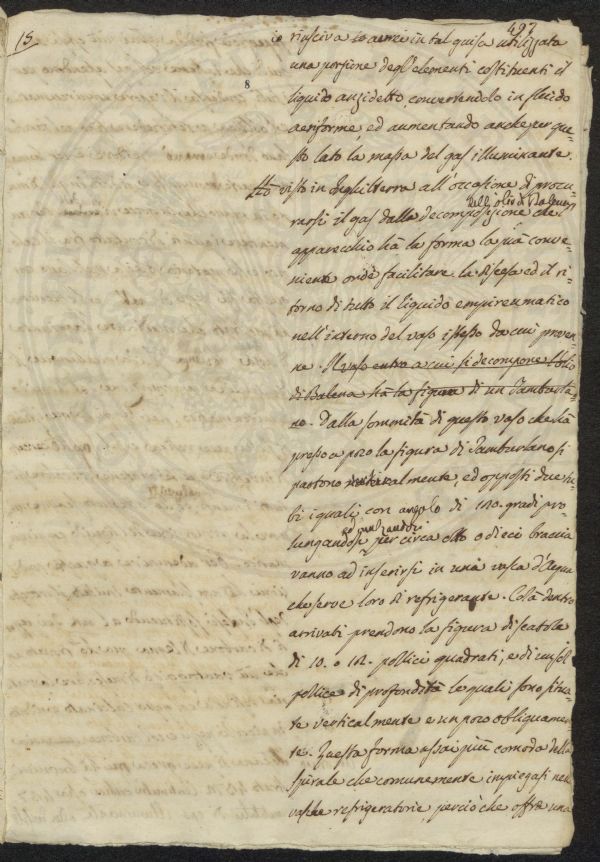 15
497
8
io riusciva to avere in tal guisa utilizzata
una porzione degl'elementi costituenti il
liquido anzidetto, convertendolo in fluido
aeriforme, ed aumentando anche per que-
sto lato la massa del gas illuminante.
Ho visto in Inghilterra all'occasione di procu-
rarsi il gas dalla decomposizione dell'olio di Balena, che l'
apparecchio hà la forma la più conve-
niente onde facilitare la discesa ed il ri-
torno di tutto il liquido empireumatico
nell'interno del vaso istesso da cui proven-
ne. Il vaso entro a cui si decompone l'olio
di Balena hà la figura di un Tamburla-
no. Dalla sommità di questo vaso che hà
presso a poco la figura di Tamburlano si
partono verticalmente, ed opposti due tu-
bi iguali con angolo di 120. gradi pro-
lungandosi ed innalzandosi per circa otto o dieci braccia
vanno ad inserirsi in una vasca d'Acqua
che serve loro di refrigerante. Colà dentro
arrivati prendono la figura di scatola
di 10. o 12. pollici quadrati, e di un sol
pollice di profondità le quali sono situa-
te verticalmente e un poco obliquamen-
te. Questa forma assai più comoda della
spirale che comunemente impiegasi nelle
vasche refrigeratorie, perciò che offre una